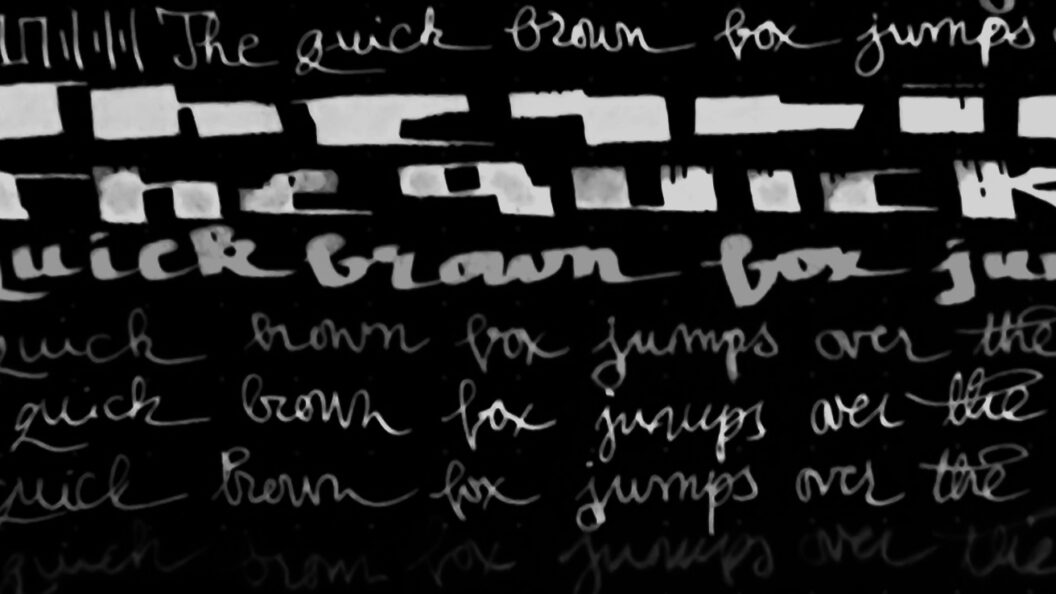 The quick brown fox jumps
quick brown fox jum
quick brown fox jumps over the
quick brown fox jumps over the
quick brown fox jumps over the
quick brown fox jumps over the